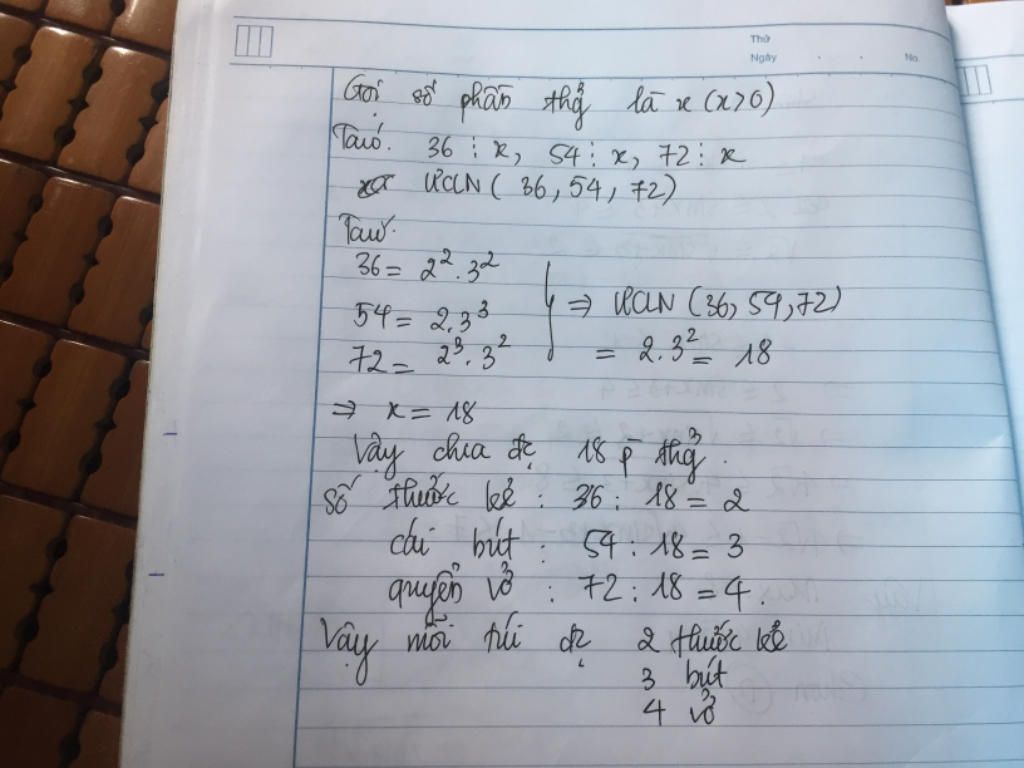 Thứ
Ngày . . No.
Gọi số phần thg̉ là x (x>0)
Ta có: 36 ⋮ x, 54 ⋮ x, 72 ⋮ x
ƯCLN ( 36, 54, 72)
Ta có:
36 = 2². 3²
54 = 2.3³
72 = 2³. 3²
⇒ ƯCLN (36, 54, 72)
= 2.3² = 18
⇒ x = 18
Vậy chia đc 18 p̄ thg̉.
số thước kẻ : 36 : 18 = 2
cái bút : 54 : 18 = 3
quyển vở : 72 : 18 = 4.
Vậy mỗi túi đc 2 thước kẻ
3 bút
4 vở